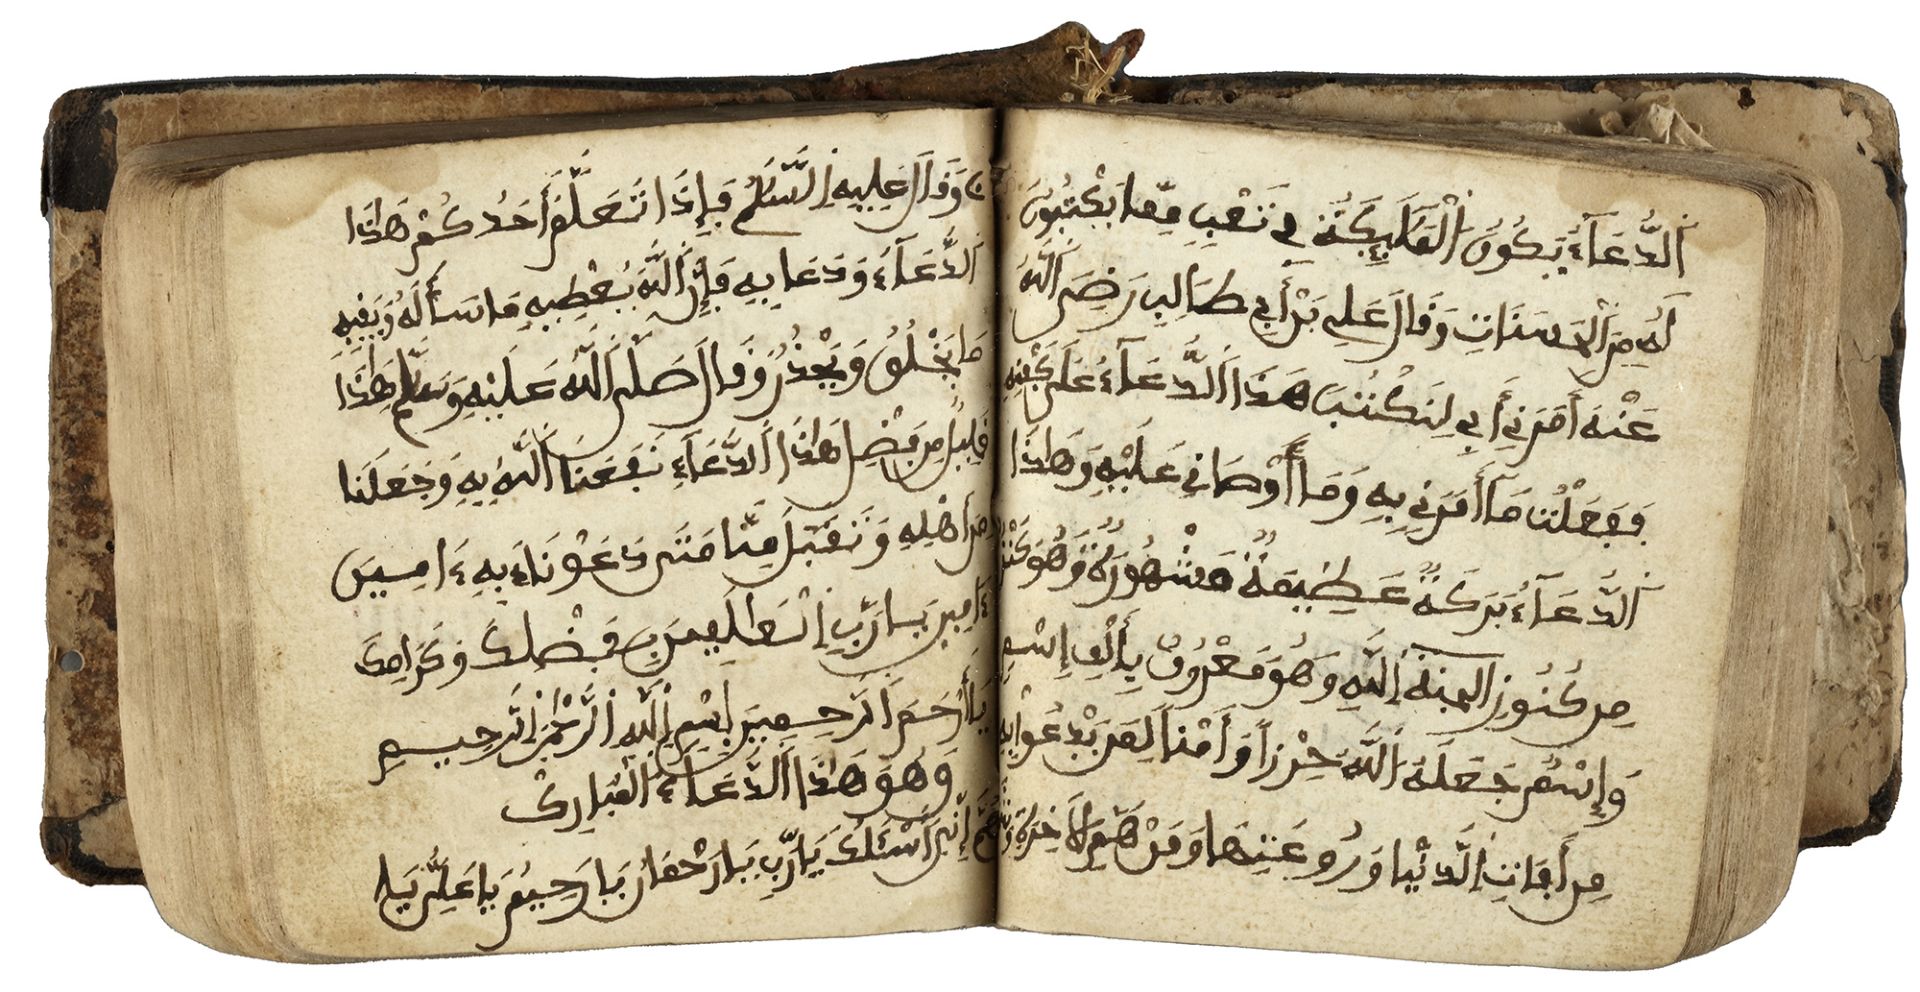 الدُّعَآءُ يَكُونُ الْمَلَٰٓئِكَةُ فِي تَعَبٍ مِمَّا يَكْتُبُونَ
لَهُ مِنَ الْحَسَنَاتِ وَقَالَ عَلِي بْنُ أَبِي طَالِبٍ رَضِيَ اللَّهُ
عَنْهُ أَمَرَنِي أَبِي لِنَكْتُبَ هَذَا الدُّعَآءُ عَلَى كَفَنِهِ
فَفَعَلْتُ مَآ أَمَرَنِي بِهِ وَمَآ أَوْصَانِي عَلَيْهِ وَهَٰذَا
الدُّعَآءُ بَرَكَةٌ عَظِيمَةٌ مَشْهُورَةٌ وَهُوَ كَنْزٌ
مِن كُنُوزِ الجنة اللَّهِ وَهُوَ مَعْرُوفٌ بِأَلْفِ إِسْمٍ
وَإِسْمٌ جَعَلَهُ اللَّهُ حِرْزاً وَأَمْناً لِمَن يَدْعُوا بِهِ
مِن أَفَاتِ الدُّنْيَا وَرُوعَتِهَا وَمِنْ هَمِّ الْأَخِرَةِ
وَقَالَ عَلَيْهِ السَّلَٰمُ فَإِذَا تَعَلَّمَ أَحَدُكُمْ هَٰذَا
الدُّعَآءُ وَدَعَا بِهِ فَإِنَّ اللَّهَ يُعْطِيهِ مَا سَأَلَهُ وَيَقِيهِ
مَا يَخْلُقُ وَيَحْذُرُ وَقَالَ صَلَّى اللَّهُ عَلَيْهِ وَسَلَّمَ هَٰذَا
قَلِيلٌ مِن فَضْلِ هَٰذَا الدُّعَآءِ نَفَعَنَا اللَّهُ بِهِ وَجَعَلَنَا
مِنْ أَهْلِهِ وَتَقَبَّلَ مِنَّا مَتَى دَعَوْنَاهُ بِهِ ءَامِين
ءَامِين يَا رَبِّ الْعَٰلَمِينَ بِفَضْلِكَ وَكَرَامِكَ
يَا أَرْحَمَ الرَّحِمِينَ بِسْمِ اللَّهِ الرَّحْمَٰنِ الرَّحِيمِ
وَهُوَ هَٰذَا الدُّعَآءُ الْمُبَارَكْ
اللَّهُمَّ إِنِّي أَسْئَلُكَ يَا رَبِّ يَا رَحْمَانُ يَا رَحِيمُ يَا عَلِيُّ يَا